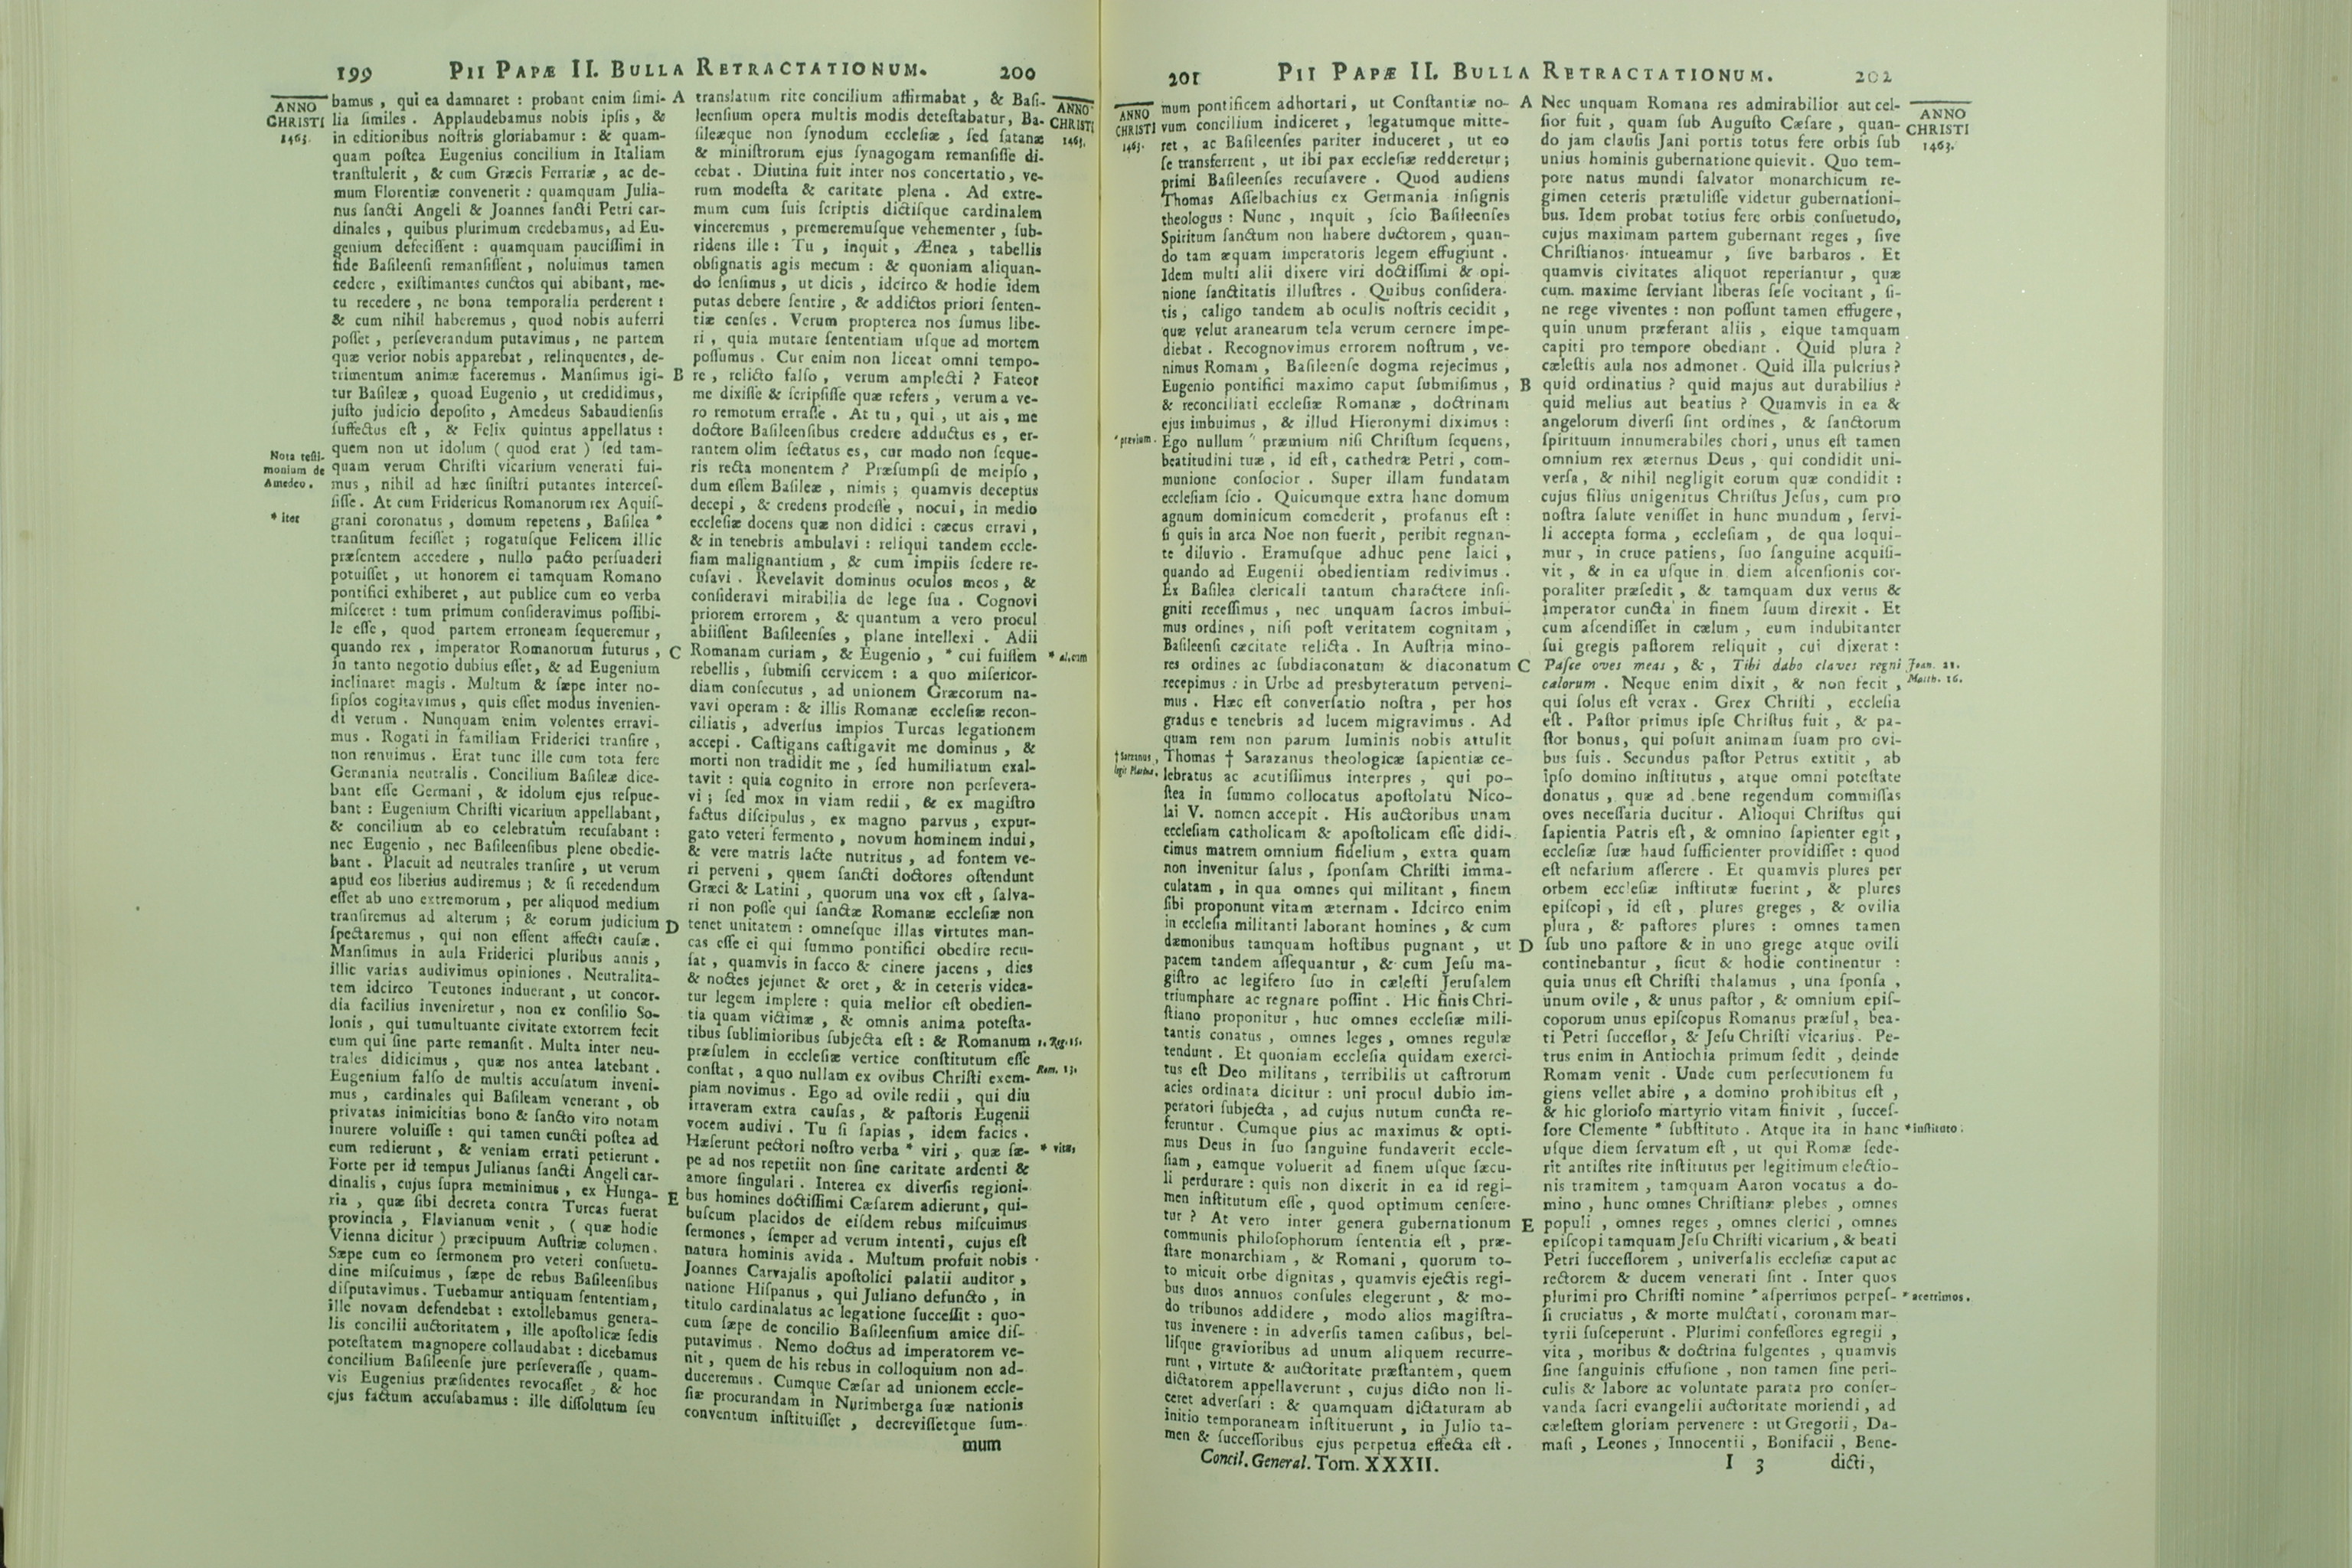 199 PII PAPÆ II. BULLA RETRACTATIONUM. 200
ANNO
CHRISTI
1463.
bamus , qui ea damnaret : probant enim ſimi-
lia ſimiles . Applaudebamus nobis ipſis , &
in editionibus noſtris gloriabamur : & quam-
quam poſtea Eugenius concilium in Italiam
tranſtulerit , & cum Græcis Ferrariæ , ac de-
mum Florentiæ convenerit : quamquam Julia-
nus ſancti Angeli & Joannes ſancti Petri car-
dinales , quibus plurimum credebamus, ad Eu-
genium defeciſſent : quamquam pauciſſimi in
fide Baſileenſi remanſiſſent , noluimus tamen
cedere , exiſtimantes cunctos qui abibant, me-
tu recedere , ne bona temporalia perderent :
& cum nihil haberemus , quod nobis auferri
poſſet , perſeverandum putavimus , ne partem
quæ verior nobis apparebat , relinquentes, de-
trimentum animæ faceremus . Manſimus igi-
tur Baſileæ , quoad Eugenio , ut credidimus,
juſto judicio depoſito , Amedeus Sabaudienſis
ſuffectus eſt , & Felix quintus appellatus :
quem non ut idolum ( quod erat ) ſed tam-
quam verum Chriſti vicarium venerati fui-
mus , nihil ad hæc ſiniſtri putantes interceſ-
ſiſſe . At cum Fridericus Romanorum rex Aquiſ-
grani coronatus , domum repetens , Baſilea *
tranſitum feciſſet ; rogatuſque Felicem illic
præſentem accedere , nullo pacto perſuaderi
potuiſſet , ut honorem ei tamquam Romano
pontifici exhiberet , aut publice cum eo verba
miſceret : tum primum conſideravimus poſſibi-
le eſſe , quod partem erroneam ſequeremur ,
quando rex , imperator Romanorum futurus ,
in tanto negotio dubius eſſet, & ad Eugenium
inclinaret magis . Multum & ſæpe inter no-
ſipſos cogitavimus , quis eſſet modus invenien-
di verum . Nunquam enim volentes erravi-
mus . Rogati in familiam Friderici tranſire ,
non renuimus . Erat tunc ille cum tota fere
Germania neutralis . Concilium Baſileæ dice-
bant eſſe Germani , & idolum ejus reſpue-
bant : Eugenium Chriſti vicarium appellabant,
& concilium ab eo celebratum recuſabant :
nec Eugenio , nec Baſileenſibus plene obedie-
bant . Placuit ad neutrales tranſire , ut verum
apud eos liberius audiremus ; & ſi recedendum
eſſet ab uno extremorum , per aliquod medium
tranſiremus ad alterum ; & eorum judicium
ſpectaremus , qui non eſſent affecti cauſæ .
Manſimus in aula Friderici pluribus annis ,
illic varias audivimus opiniones . Neutralita-
tem idcirco Teutones induerant , ut concor-
dia facilius inveniretur , non ex conſilio So-
lonis , qui tumultuante civitate extorrem fecit
eum qui ſine parte remanſit . Multa inter neu-
trales didicimus , quæ nos antea latebant .
Eugenium falſo de multis accuſatum inveni-
mus , cardinales qui Baſileam venerant , ob
privatas inimicitias bono & ſancto viro notam
inurere voluiſſe : qui tamen cuncti poſtea ad
eum redierunt , & veniam errati petierunt .
Forte per id tempus Julianus ſancti Angeli car-
dinalis , cujus ſupra meminimus , ex Hunga-
ria , quæ ſibi decreta contra Turcas fuerat
provincia , Flavianum venit , ( quæ hodie
Vienna dicitur ) præcipuum Auſtriæ columen .
Sæpe cum eo ſermonem pro veteri conſuetu-
dine miſcuimus , ſæpe de rebus Baſileenſibus
diſputavimus . Tuebamur antiquam ſententiam ,
ille novam defendebat : extollebamus genera-
lis concilii auctoritatem , ille apoſtolicæ ſedis
poteſtatem magnopere collaudabat : dicebamus
concilium Baſileenſe jure perſeveraſſe , quam-
vis Eugenius præſidentes revocaſſet , & hoc
ejus factum accuſabamus : ille diſſolutum ſeu
Nota teſti-
monium de
Amedeo .
* iter
A
B
C
D
E
translatum rite concilium affirmabat , & Baſi-
leenſium opera multis modis deteſtabatur, Ba-
ſileæque non ſynodum eccleſiæ , ſed ſatanæ
& miniſtrorum ejus ſynagogam remanſiſſe di-
cebat . Diutina fuit inter nos concertatio , ve-
rum modeſta & caritate plena . Ad extre-
mum cum ſuis ſcriptis dictiſque cardinalem
vinceremus , premeremuſque vehementer , ſub-
ridens ille : Tu , inquit , Ænea , tabellis
obſignatis agis mecum : & quoniam aliquan-
do ſenſimus , ut dicis , idcirco & hodie idem
putas debere ſentire , & addictos priori ſenten-
tiæ cenſes . Verum propterea nos ſumus libe-
ri , quia mutare ſententiam uſque ad mortem
poſſumus . Cur enim non liceat omni tempo-
re , relicto falſo , verum amplecti ? Fateor
me dixiſſe & ſcripſiſſe quæ refers , verum a ve-
ro remotum erraſſe . At tu , qui , ut ais , me
doctore Baſileenſibus credere adductus es , er-
rantem olim ſectatus es, cur modo non ſeque-
ris recta monentem ? Præſumpſi de meipſo ,
dum eſſem Baſileæ , nimis ; quamvis deceptus
decepi , & credens prodeſſe , nocui, in medio
eccleſiæ docens quæ non didici : cæcus erravi ,
& in tenebris ambulavi : reliqui tandem eccle-
ſiam malignantium , & cum impiis ſedere re-
cuſavi . Revelavit dominus oculos meos , &
conſideravi mirabilia de lege ſua . Cognovi
priorem errorem , & quantum a vero procul
abiiſſent Baſileenſes , plane intellexi . Adii
Romanam curiam , & Eugenio , * cui fuiſſem
rebellis , ſubmiſi cervicem : a quo miſericor-
diam conſecutus , ad unionem Græcorum na-
vavi operam : & illis Romanæ eccleſiæ recon-
ciliatis , adverſus impios Turcas legationem
accepi . Caſtigans caſtigavit me dominus , &
morti non tradidit me , ſed humiliatum exal-
tavit : quia cognito in errore non perſevera-
vi ; ſed mox in viam redii , & ex magiſtro
factus diſcipulus , ex magno parvus , expur-
gato veteri fermento , novum hominem indui ,
& vere matris lacte nutritus , ad fontem ve-
ri perveni , quem ſancti doctores oſtendunt
Græci & Latini , quorum una vox eſt , ſalva-
ri non poſſe qui ſanctæ Romanæ eccleſiæ non
tenet unitatem : omneſque illas virtutes man-
cas eſſe ei qui ſummo pontifici obedire recu-
ſat , quamvis in ſacco & cinere jacens , dies
& noctes jejunet & oret , & in ceteris videa-
tur legem implere : quia melior eſt obedien-
tia quam victimæ , & omnis anima poteſta-
tibus ſublimioribus ſubjecta eſt : & Romanum
præſulem in eccleſiæ vertice conſtitutum eſſe
conſtat , a quo nullam ex ovibus Chriſti exem-
piam novimus . Ego ad ovile redii , qui diu
irraveram extra caulas , & paſtoris Eugenii
vocem audivi . Tu ſi ſapias , idem facies .
Hæſerunt pectori noſtro verba * viri , quæ ſæ-
pe ad nos repetiit non ſine caritate ardenti &
amore ſingulari . Interea ex diverſis regioni-
bus homines doctiſſimi Cæſarem adierunt, qui-
buſcum placidos de eiſdem rebus miſcuimus
ſermones , ſemper ad verum intenti, cujus eſt
natura hominis avida . Multum profuit nobis
Joannes Carvajalis apoſtolici palatii auditor ,
natione Hiſpanus , qui Juliano defuncto , in
titulo cardinalatus ac legatione ſucceſſit : quo-
cum ſæpe de concilio Baſileenſium amice diſ-
putavimus . Nemo doctus ad imperatorem ve-
nit , quem de his rebus in colloquium non ad-
duceremus . Cumque Cæſar ad unionem eccle-
ſiæ procurandam in Nurimberga ſuæ nationis
conventum inſtituiſſet , decreviſſetque ſum-
mum
ANNO
CHRISTI
1463.
* al. cum
1. Reg. 15.
Rom. 13.
* vitæ,
201 PII PAPÆ II. BULLA RETRACTATIONUM. 202
ANNO
CHRISTI
1463.
mum pontificem adhortari , ut Conſtantiæ no-
vum concilium indiceret , legatumque mitte-
ret , ac Baſileenſes pariter induceret , ut eo
ſe transferrent , ut ibi pax eccleſiæ redderetur ;
primi Baſileenſes recuſavere . Quod audiens
Thomas Aſſelbachius ex Germania inſignis
theologus : Nunc , inquit , ſcio Baſileenſes
Spiritum ſanctum non habere ductorem , quan-
do tam æquam imperatoris legem effugiunt .
Idem multi alii dixere viri doctiſſimi & opi-
nione ſanctitatis illuſtres . Quibus conſidera-
tis , caligo tandem ab oculis noſtris cecidit ,
quæ velut aranearum tela verum cernere impe-
diebat . Recognovimus errorem noſtrum , ve-
nimus Romam , Baſileenſe dogma rejecimus ,
Eugenio pontifici maximo caput ſubmiſimus ,
& reconciliati eccleſiæ Romanæ , doctrinam
ejus imbuimus , & illud Hieronymi diximus :
Ego nullum * præmium niſi Chriſtum ſequens,
beatitudini tuæ , id eſt, cathedræ Petri , com-
munione conſocior . Super illam fundatam
eccleſiam ſcio . Quicumque extra hanc domum
agnum dominicum comederit , profanus eſt :
ſi quis in arca Noe non fuerit, peribit regnan-
te diluvio . Eramuſque adhuc pene laici ,
quando ad Eugenii obedientiam redivimus .
Ex Baſilea clericali tantum charactere inſi-
gniti receſſimus , nec unquam ſacros imbui-
mus ordines , niſi poſt veritatem cognitam ,
Baſileenſi cæcitate relicta . In Auſtria mino-
res ordines ac ſubdiaconatum & diaconatum
recepimus : in Urbe ad presbyteratum perveni-
mus . Hæc eſt converſatio noſtra , per hos
gradus e tenebris ad lucem migravimus . Ad
quam rem non parum luminis nobis attulit
Thomas † Sarazanus theologicæ ſapientiæ ce-
lebratus ac acutiſſimus interpres , qui po-
ſtea in ſummo collocatus apoſtolatu Nico-
lai V. nomen accepit . His auctoribus unam
eccleſiam catholicam & apoſtolicam eſſe didi-
cimus matrem omnium fidelium , extra quam
non invenitur ſalus , ſponſam Chriſti imma-
culatam , in qua omnes qui militant , finem
ſibi proponunt vitam æternam . Idcirco enim
in eccleſia militanti laborant homines , & cum
dæmonibus tamquam hoſtibus pugnant , ut
pacem tandem aſſequantur , & cum Jeſu ma-
giſtro ac legifero ſuo in cæleſti Jeruſalem
triumphare ac regnare poſſint . Hic finis Chri-
ſtiano proponitur , huc omnes eccleſiæ mili-
tantis conatus , omnes leges , omnes regulæ
tendunt . Et quoniam eccleſia quidam exerci-
tus eſt Deo militans , terribilis ut caſtrorum
acies ordinata dicitur : uni procul dubio im-
peratori ſubjecta , ad cujus nutum cuncta re-
feruntur . Cumque pius ac maximus & opti-
mus Deus in ſuo ſanguine fundaverit eccle-
ſiam , eamque voluerit ad finem uſque ſæcu-
li perdurare : quis non dixerit in ea id regi-
men inſtitutum eſſe , quod optimum cenſere-
tur ? At vero inter genera gubernationum
communis philoſophorum ſententia eſt , præ-
ſtare monarchiam , & Romani , quorum to-
to micuit orbe dignitas , quamvis ejectis regi-
bus duos annuos conſules elegerunt , & mo-
do tribunos addidere , modo alios magiſtra-
tus invenere : in adverſis tamen caſibus, bel-
liſque gravioribus ad unum aliquem recurre-
runt , virtute & auctoritate præſtantem , quem
dictatorem appellaverunt , cujus dicto non li-
ceret adverſari : & quamquam dictaturam ab
initio temporaneam inſtituerunt , in Julio ta-
men & ſucceſſoribus ejus perpetua effecta eſt .
* prævium.
† Sarzanus ,
legit Platina.
Concil. General. Tom. XXXII.
A
B
C
D
E
Nec unquam Romana res admirabilior aut cel-
ſior fuit , quam ſub Auguſto Cæſare , quan-
do jam clauſis Jani portis totus fere orbis ſub
unius hominis gubernatione quievit . Quo tem-
pore natus mundi ſalvator monarchicum re-
gimen ceteris prætuliſſe videtur gubernationi-
bus. Idem probat totius fere orbis conſuetudo,
cujus maximam partem gubernant reges , ſive
Chriſtianos intueamur , ſive barbaros . Et
quamvis civitates aliquot reperiantur , quæ
cum maxime ſerviant liberas ſeſe vocitant , ſi-
ne rege viventes : non poſſunt tamen effugere,
quin unum præferant aliis , eique tamquam
capiti pro tempore obediant . Quid plura ?
cæleſtis aula nos admonet . Quid illa pulcrius ?
quid ordinatius ? quid majus aut durabilius ?
quid melius aut beatius ? Quamvis in ea &
angelorum diverſi ſint ordines , & ſanctorum
ſpirituum innumerabiles chori , unus eſt tamen
omnium rex æternus Deus , qui condidit uni-
verſa , & nihil negligit eorum quæ condidit :
cujus filius unigenitus Chriſtus Jeſus, cum pro
noſtra ſalute veniſſet in hunc mundum , ſervi-
li accepta forma , eccleſiam , de qua loqui-
mur , in cruce patiens, ſuo ſanguine acquiſi-
vit , & in ea uſque in diem aſcenſionis cor-
poraliter præſedit , & tamquam dux verus &
imperator cuncta in finem ſuum direxit . Et
cum aſcendiſſet in cælum , eum indubitanter
ſui gregis paſtorem reliquit , cui dixerat :
Paſce oves meas , & , Tibi dabo claves regni
cælorum . Neque enim dixit , & non fecit ,
qui ſolus eſt verax . Grex Chriſti , eccleſia
eſt . Paſtor primus ipſe Chriſtus fuit , & pa-
ſtor bonus, qui poſuit animam ſuam pro ovi-
bus ſuis . Secundus paſtor Petrus extitit , ab
ipſo domino inſtitutus , atque omni poteſtate
donatus , quæ ad bene regendum commiſſas
oves neceſſaria ducitur . Alioqui Chriſtus qui
ſapientia Patris eſt, & omnino ſapienter egit ,
eccleſiæ ſuæ haud ſufficienter providiſſet : quod
eſt nefarium aſſerere . Et quamvis plures per
orbem eccleſiæ inſtitutæ fuerint , & plures
epiſcopi , id eſt , plures greges , & ovilia
plura , & paſtores plures : omnes tamen
ſub uno paſtore & in uno grege atque ovili
continebantur , ſicut & hodie continentur :
quia unus eſt Chriſti thalamus , una ſponſa ,
unum ovile , & unus paſtor , & omnium epiſ-
coporum unus epiſcopus Romanus præſul, bea-
ti Petri ſucceſſor, & Jeſu Chriſti vicarius . Pe-
trus enim in Antiochia primum ſedit , deinde
Romam venit . Unde cum perſecutionem fu
giens vellet abire , a domino prohibitus eſt ,
& hic glorioſo martyrio vitam finivit , ſucceſ-
ſore Clemente * ſubſtituto . Atque ita in hanc
uſque diem ſervatum eſt , ut qui Romæ ſede-
rit antiſtes rite inſtitutus per legitimum electio-
nis tramitem , tamquam Aaron vocatus a do-
mino , hunc omnes Chriſtianæ plebes , omnes
populi , omnes reges , omnes clerici , omnes
epiſcopi tamquam Jeſu Chriſti vicarium , & beati
Petri ſucceſſorem , univerſalis eccleſiæ caput ac
rectorem & ducem venerati ſint . Inter quos
plurimi pro Chriſti nomine * aſperrimos perpeſ-
ſi cruciatus , & morte mulctati, coronam mar-
tyrii ſuſceperunt . Plurimi confeſſores egregii ,
vita , moribus & doctrina fulgentes , quamvis
ſine ſanguinis effuſione , non tamen ſine peri-
culis & labore ac voluntate parata pro conſer-
vanda ſacri evangelii auctoritate moriendi , ad
cæleſtem gloriam pervenere : ut Gregorii, Da-
maſi , Leones , Innocentii , Bonifacii , Bene-
I 3 dicti,
ANNO
CHRISTI
1463.
Joan. 21.
Matth. 16.
* inſtituto .
* acerrimos.